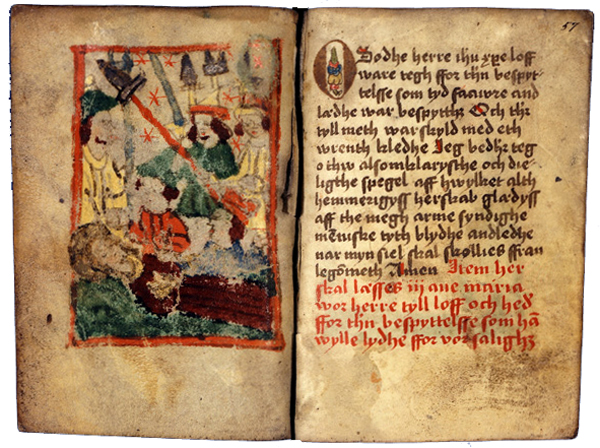 57
O Sødhe herre ihu xpe loff
ware tegh ffor thn bespyt-
telsse som tyd faaure and
lædhe war bespytthz Och thr
tyll meth war skyld med eth
wrenth klædhe Jeg bedhr teg
o thw alsom klarysthe och die-
ligthe spegel aff hwylket alth
hemmerigyss herskab gladyss
aff tha megh arme syndighe
mēniske tyth blydhe andledhe
nar myn siel skal skøllies ffran
legom̄eth Amen Item her
skal læsses iij aue maria
wor herre tyll loff och hedr
ffor thn bespyttelsse som hā
wylle lydhe ffor vor salighz